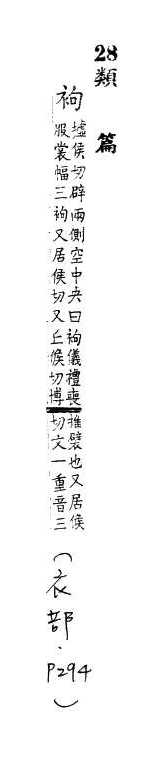 28
類篇
袧
墟侯切辟兩側空中央曰袧儀禮喪
服裳幅三袧又居侯切又丘候切博
雅襞也又居候
切文一重音三
(衣部.P294)